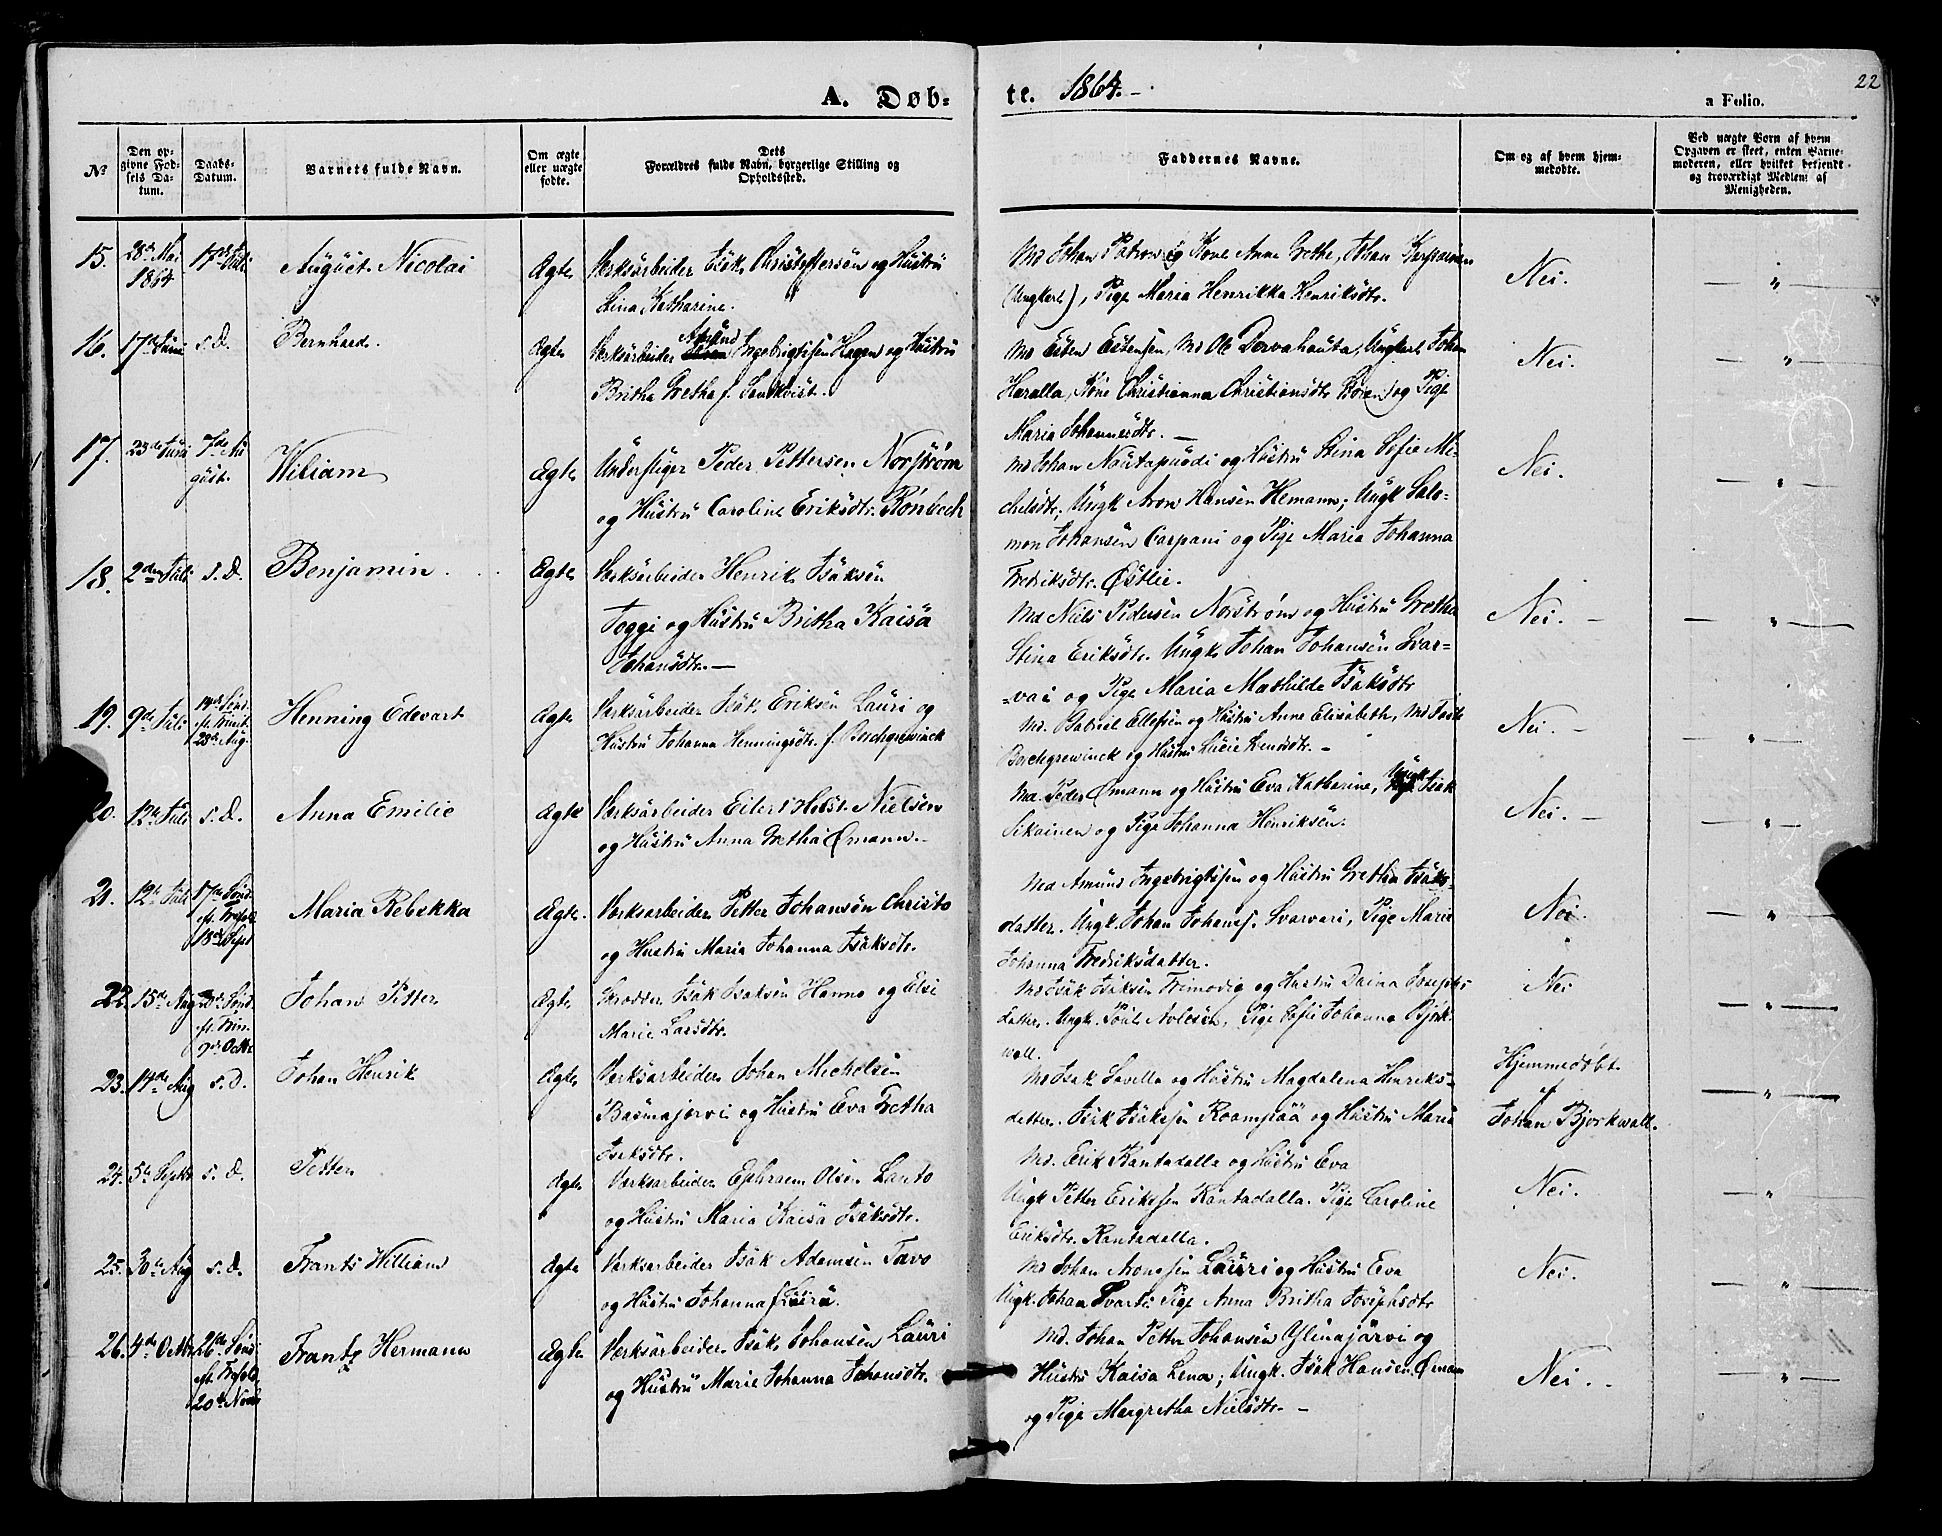 A. Døb-
te. 1864.
a Folio.
22
No
Den op-
givne Fød-
sels Da-
tum.
Daabs-
Datum.
Barnets fulde Navn.
Om ægte
eller uægte
fødte.
Dets
Forældres fulde Navn, borgerlige Stilling og
Opholdssted.
Faddernes Navne.
Om og af hvem hjem-
medøbte.
Ved uægte Børn af hvem
Opgaven er skeet, enten Barne-
moderen, eller hvilket bekjendt
og troværdigt Medlem af
Menigheden.
15.
28de Mai
1864
August Nicolai
Ægte
Værksarbeider Isak Christophersen og Hustru
Stina Katharine.
Md Johan og Kone Anna Grethe, Johan
(Ungkarl), Pige Maria Henrikka Henriksdtr.
Nei.
16.
17de Juni
s. D.
Bernhard.
Ægte
Værksarbeider Amund Ingebrigtsen Hagen og Hustru
Britha Gretha f.
Md Esten Estensen, Md Ole Dervahauta, Ungkarl Johan
Haralla, Kone Christianna Christiansdtr og Pige
Maria Johannesdtr.
Nei.
17.
23de Juni
7de Au
gust.
Wiliam
Ægte
Understiger Peder Pettersen Norstrøm
og Hustru Caroline Eriksdtr. Rønbech
Md Johan og Hustru Stina Sofie Mi-
chelsdtr; Ungk Aron Hansen Hemann; Ungk Salo-
mon Johansen Carpani og Pige Maria Johanna
Fredriksdtr. Østlie.
Nei.
18.
2den Juli
s. D.
Benjamin.
Ægte
Værksarbeider Henrik Isaksen
Foggi og Hustru Britha Kaisa
Johansdtr.
Md Niels Pedersen Norstrøm og Hustru Gretha
Stina Eriksdtr. Ungk Johan Johansen Svar-
-vai og Pige Maria Mathilde Isaksdtr
Nei.
19.
9de Juli
14de Sønd.
ft. Trinit.
28de Aug.
Henning Edevart
Ægte
Værksarbeider Isak Eriksen Lauri og
Hustru Johanna Henningsdtr. f. Borchgrewinck
Md. Gabriel Ellefsen og Hustru Anne Elisabeth, Md
Borchgrewinck og Hustru Lucie
Nei.
20.
12te Juli
s. D.
Anna Emilie
Ægte
Værksarbeider Eilert Holst Nielsen
og Hustru Anna Gretha Ømann.
Md. Peder Ømann og Hustru Eva Katharine, Ungk Isak
Sikainen og Pige Johanna Henriksen.
Nei.
21.
12te Juli
17de Sønd.
18de Sept
Maria Rebekka
Ægte.
Værksarbeider Petter Johansen Christo
og Hustru Maria Johanna Isaksdtr.
Md Amund Ingebrigtsen og Hustru Gretha Isaks-
datter. Ungk. Johan Johans. Svarvari, Pige Marie
Johanna Fredriksdatter.
Nei.
22.
15de Aug
Sønd.
ft. Trin.
9de Octbr
Johan Petter
Ægte
Skrædder Isak Isaksen Hanno og Elsi
Marie Larsdtr.
Md Isak Isaksen Frimodig og Hustru Daina Josephs
datter. Ungk. Poul, Pige Sofie Johanna Bjørk-
wall.
Nei
23.
14de Aug
s. D.
Johan Henrik
Ægte
Værksarbeider Johan Michelsen
Basmajærvi og Hustru Eva Gretha
Isaksdtr.
Md Isak Savella og Hustru Magdalena Henriks-
datter. Isak Isaksen og Hustru Maria
Hjemmedøbt
af
Johan Bjørkwall.
24.
5te Septbr
s. D.
Petter
Ægte
Værksarbeider Ephraem Olsen Lanto
og Hustru Maria Kaisa Isaksdtr.
Md. Erik Kantadalla og Hustru Eva
Ungk Petter Eriksen Kantadalla. Pige Caroline
Eriksdtr. Kantadalla.
Nei.
25.
30te Aug
s. D.
Frants William
Ægte
Værksarbeider Isak Adamsen Tavo
og Hustru Johanna f.
Md Johan Aronsen Lauri og Hustru Eva
Ungk. Johan Svarti Pige Anna Britha Josephsdtr
Nei.
26.
4de Octbr
26de Sønd.
20de Novbr
Frants Hermann
Ægte
Værksarbeider Isak Johansen Lauri
og Hustru Marie Johanna Johansdtr.
Md. Johan Petter Johansen Ylinajärvi og
Hustru Kaisa Lena; Ungk. Isak Hansen Ømann
og Pige Margretha Nielsdtr.
Nei.